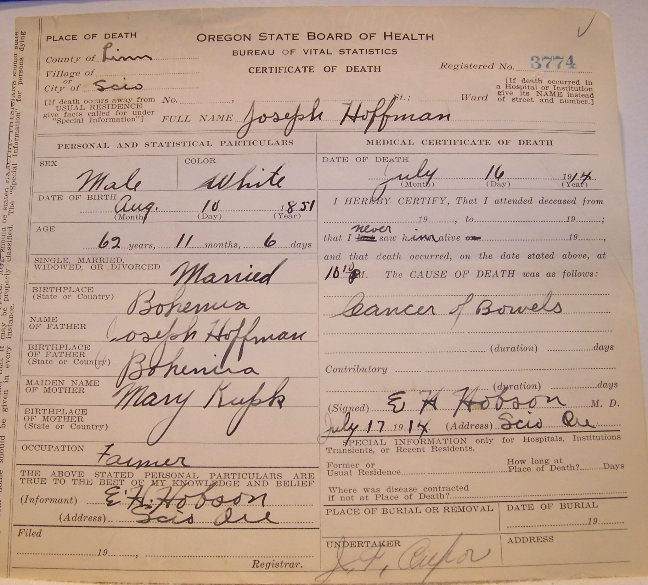 PLACE OF DEATH
County of Linn
Village of
or
City of Scio
[If death occurs away from USUAL RESIDENCE give facts called for under "Special Information"]
OREGON STATE BOARD OF HEALTH
BUREAU OF VITAL STATISTICS
CERTIFICATE OF DEATH
Registered No. 3774
[If death occurred in a Hospital or Institution give its NAME instead of street and number.]
No. St.; Ward
FULL NAME Joseph Hoffman
PERSONAL AND STATISTICAL PARTICULARS
SEX Male
COLOR White
DATE OF BIRTH Aug. 10 1851
(Month) (Day) (Year)
AGE
62 years, 11 months, 6 days
SINGLE, MARRIED, WIDOWED, OR DIVORCED Married
BIRTHPLACE (State or Country) Bohemia
NAME OF FATHER Joseph Hoffman
BIRTHPLACE OF FATHER (State or Country) Bohemia
MAIDEN NAME OF MOTHER Mary
BIRTHPLACE OF MOTHER (State or Country)
OCCUPATION Farmer
THE ABOVE STATED PERSONAL PARTICULARS ARE
TRUE TO THE BEST OF MY KNOWLEDGE AND BELIEF
(Informant) E H Hobson
(Address) Scio Ore
Filed
19
Registrar.
MEDICAL CERTIFICATE OF DEATH
DATE OF DEATH
July 16 1914
(Month) (Day) (Year)
I HEREBY CERTIFY, That I attended deceased from
19 , to 19 ;
that I never saw him alive 19 ;
and that death occurred, on the date stated above, at
M. The CAUSE OF DEATH was as follows:
Cancer of Bowels
(duration) days
Contributory
(duration) days
(Signed) E H Hobson M. D.
July 17 1914 (Address) Scio Ore
SPECIAL INFORMATION only for Hospitals, Institutions
Transients, or Recent Residents.
Former or Usual Residence
How long at Place of Death? Days
Where was disease contracted
if not at Place of Death?
PLACE OF BURIAL OR REMOVAL
DATE OF BURIAL
19
UNDERTAKER
ADDRESS